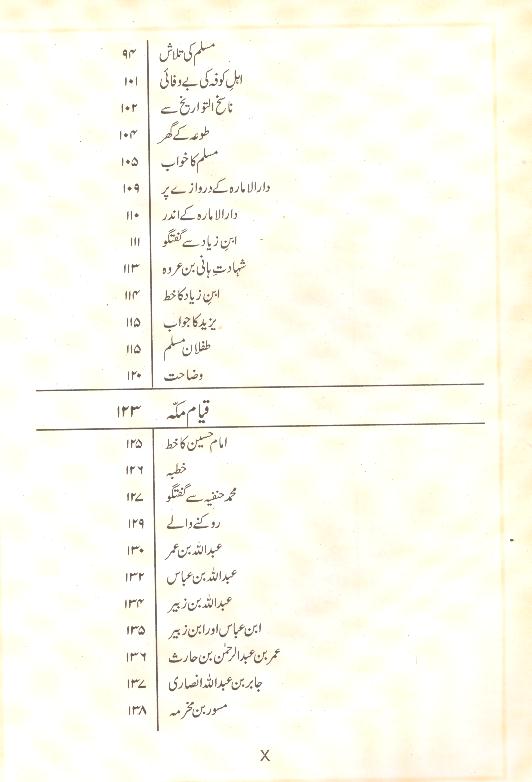 مسلم کی تلاش ۹۴
اہلِ کوفہ کی بے وفائی ۱۰۱
ناسخ التواریخ سے ۱۰۲
طوعہ کے گھر ۱۰۴
مسلم کا خواب ۱۰۵
دارالامارہ کے دروازے پر ۱۰۹
دارالامارہ کے اندر ۱۱۰
ابنِ زیاد سے گفتگو ۱۱۱
شہادتِ ہانی بن عروہ ۱۱۳
ابنِ زیاد کا خط ۱۱۴
یزید کا جواب ۱۱۵
طفلان مسلم ۱۱۵
وضاحت ۱۲۰
قیام مکّہ ۱۲۳
امام حسین کا خط ۱۲۵
خطبہ ۱۲۶
محمد حنفیہ سے گفتگو ۱۲۷
روکنے والے ۱۲۹
عبداللہ بن عمر ۱۳۰
عبداللہ بن عباس ۱۳۲
عبداللہ بن زبیر ۱۳۴
ابن عباس اور ابن زبیر ۱۳۵
عمر بن عبدالرحمٰن بن حارث ۱۳۶
جابر بن عبداللہ انصاری ۱۳۷
مسور بن مخرمہ ۱۳۸
X